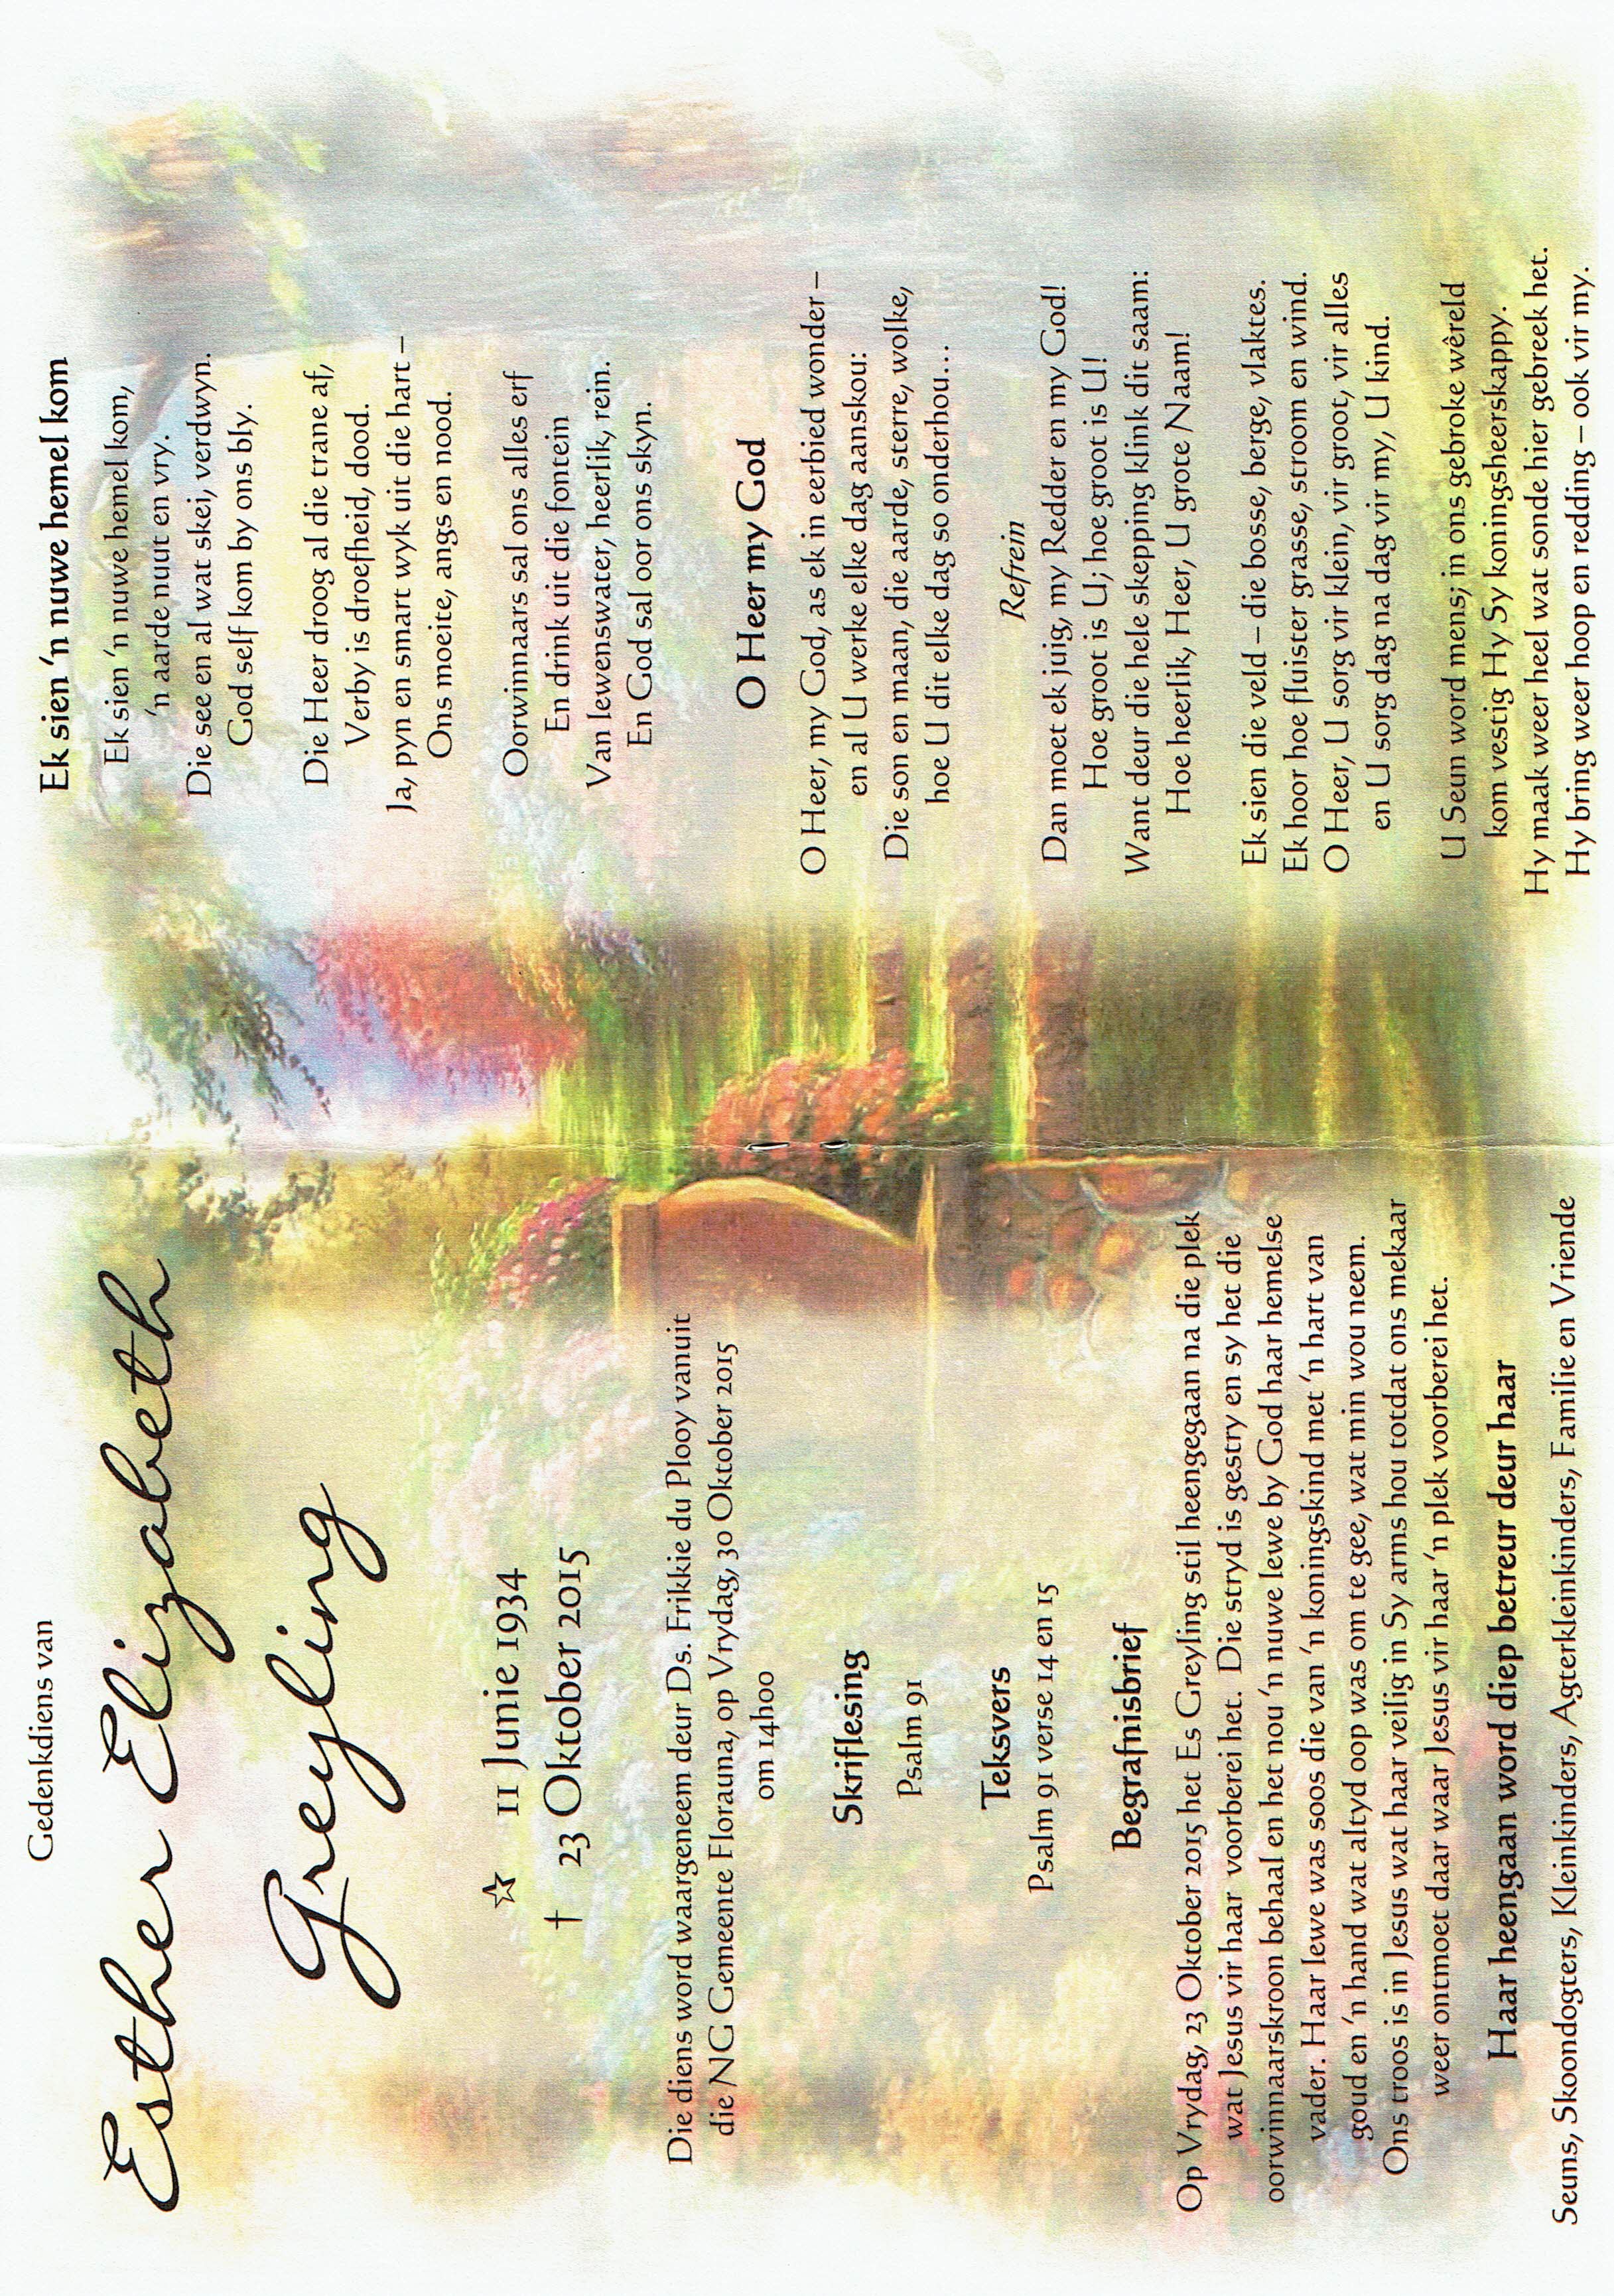 Gedenkdiens van
Esther Elizabeth
Greyling
☆ 11 Junie 1934
† 23 Oktober 2015
Die diens word waargeneem deur Ds. Frikkie du Plooy vanuit
die NG Gemeente Florauna, op Vrydag, 30 Oktober 2015
om 14h00
Skriflesing
Psalm 91
Teksvers
Psalm 91 verse 14 en 15
Begrafnisbrief
Op Vrydag, 23 Oktober 2015 het Es Greyling stil heengegaan na die plek
wat Jesus vir haar voorberei het. Die stryd is gestry en sy het die
oorwinnaarskroon behaal en het nou 'n nuwe lewe by God haar hemelse
vader. Haar lewe was soos die van 'n koningskind met 'n hart van
goud en 'n hand wat altyd oop was om te gee, wat min wou neem.
Ons troos is in Jesus wat haar veilig in Sy arms hou totdat ons mekaar
weer ontmoet daar waar Jesus vir haar 'n plek voorberei het.
Haar heengaan word diep betreur deur haar
Seuns, Skoondogters, Kleinkinders, Agterkleinkinders, Familie en Vriende
Ek sien 'n nuwe hemel kom
Ek sien 'n nuwe hemel kom,
'n aarde nuut en vry.
Die see en al wat skei, verdwyn.
God self kom by ons bly.
Die Heer droog al die trane af,
Verby is droefheid, dood.
Ja, pyn en smart wyk uit die hart –
Ons moeite, angs en nood.
Oorwinnaars sal ons alles erf
En drink uit die fontein
Van lewenswater, heerlik, rein.
En God sal oor ons skyn.
O Heer my God
O Heer, my God, as ek in eerbied wonder –
en al U werke elke dag aanskou:
Die son en maan, die aarde, sterre, wolke,
hoe U dit elke dag so onderhou…
Refrein
Dan moet ek juig, my Redder en my God!
Hoe groot is U; hoe groot is U!
Want deur die hele skepping klink dit saam:
Hoe heerlik, Heer, U grote Naam!
Ek sien die veld – die bosse, berge, vlaktes.
Ek hoor hoe fluister grasse, stroom en wind.
O Heer, U sorg vir klein, vir groot, vir alles
en U sorg dag na dag vir my, U kind.
U Seun word mens; in ons gebroke wêreld
kom vestig Hy Sy koningsheerskappy.
Hy maak weer heel wat sonde hier gebreek het.
Hy bring weer hoop en redding – ook vir my.